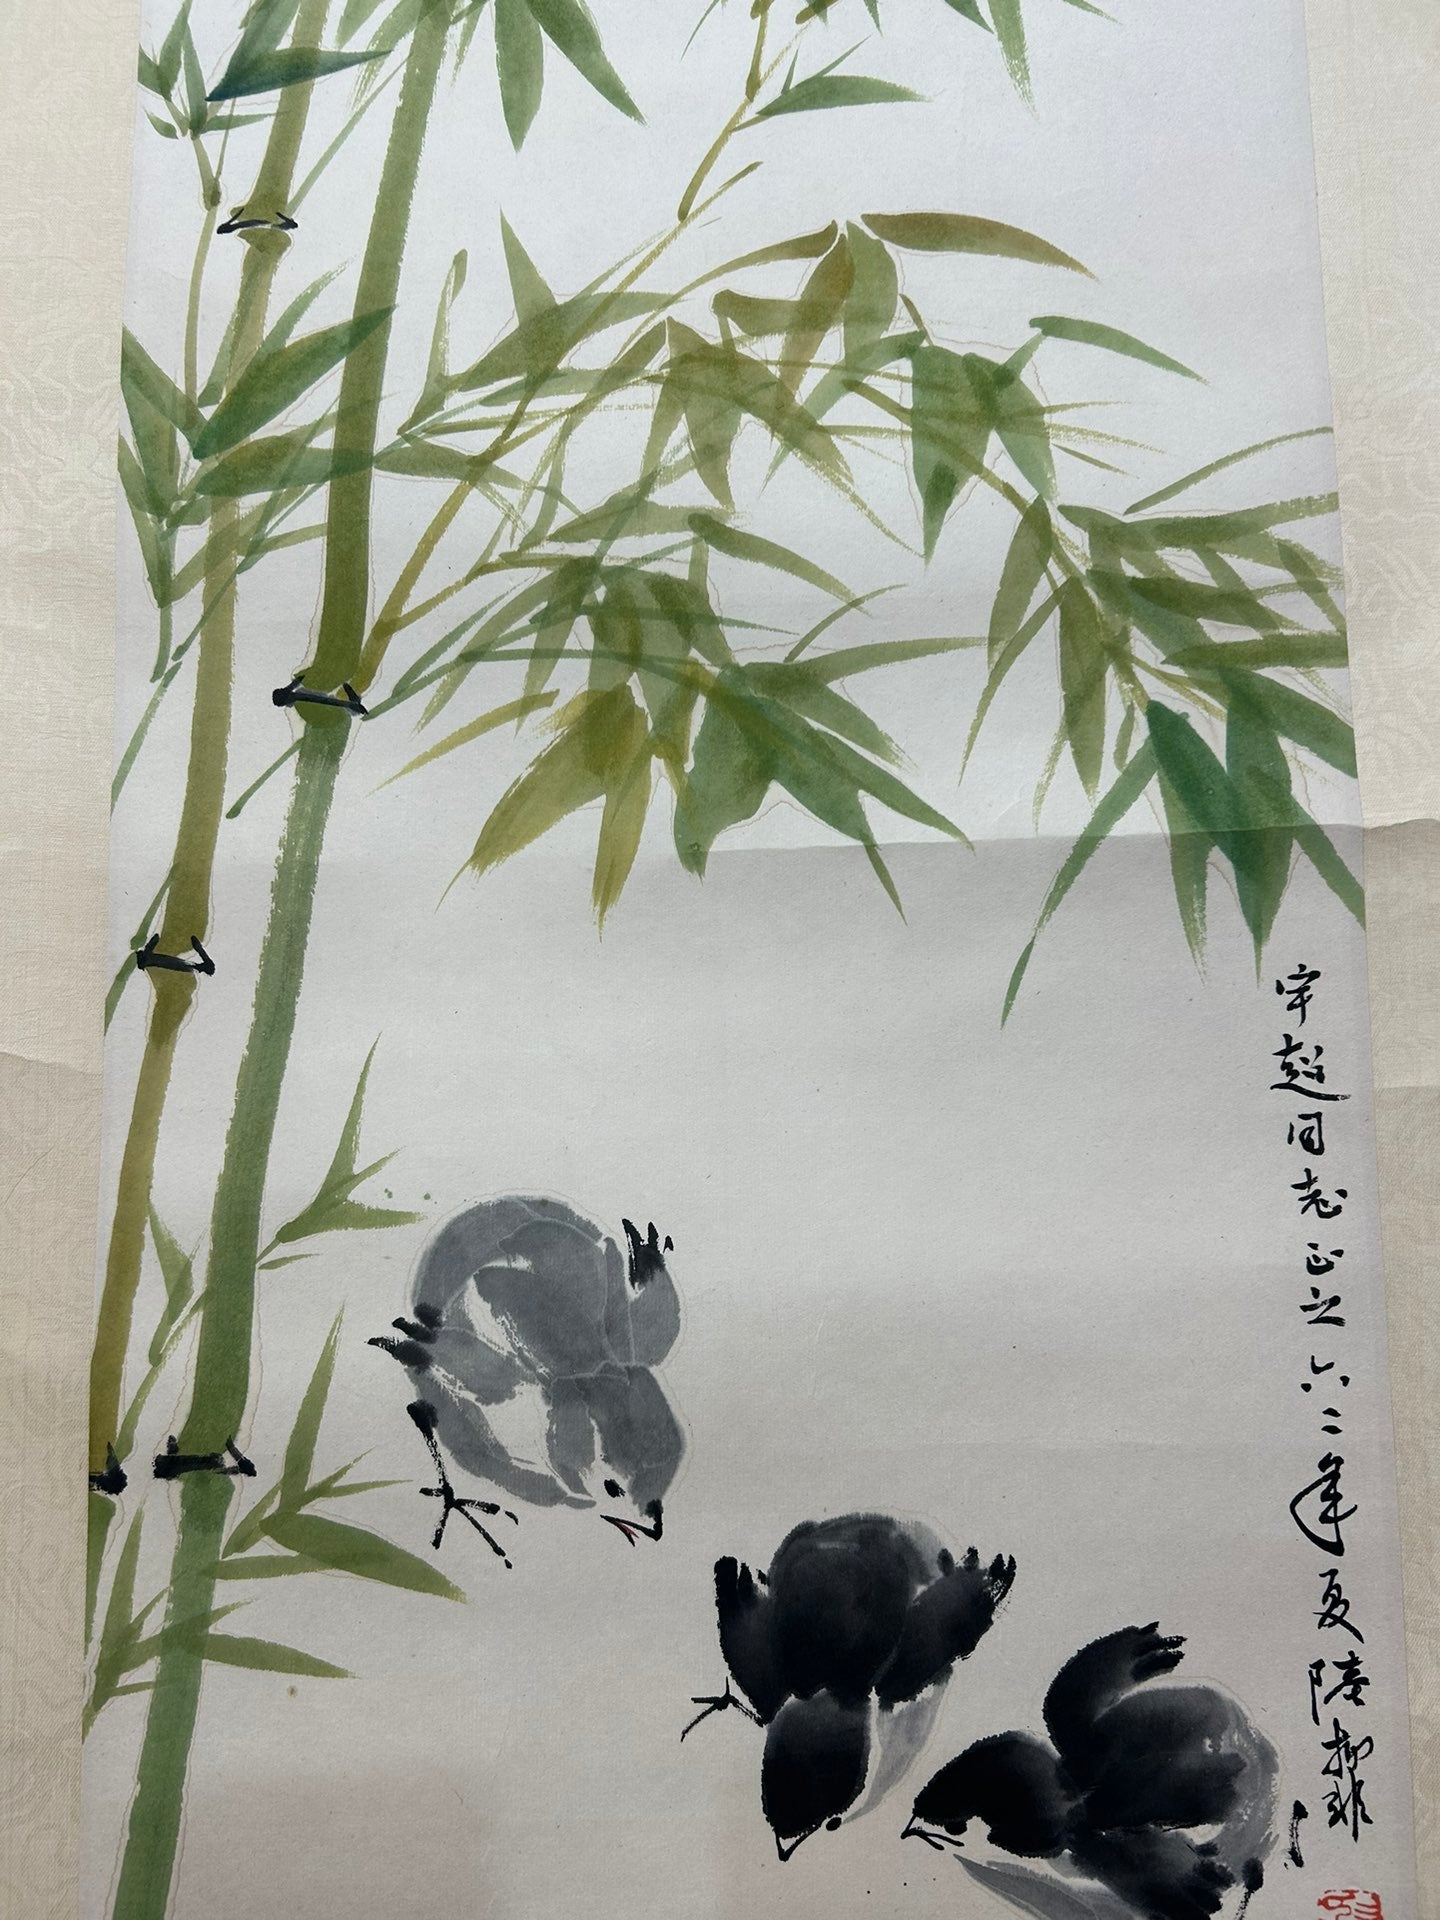 宇超同志正之 六二年夏 陆抑非